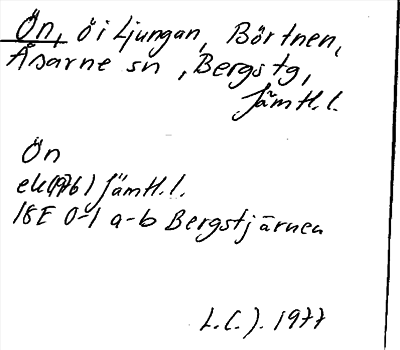 Ön, ö i Ljungan, Börtnen,
Åsarne sn, Bergs tg,
Jämtl. l.
Ön
ek(1976) Jämtl. l.
18E 0-1 a-b Bergstjärnen
L.C.J. 1977